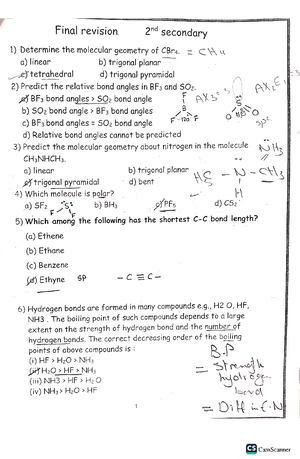 Final revision 2nd secondary
1) Determine the molecular geometry of CBr4. = CH4
a) linear b) trigonal planar
c) tetrahedral d) trigonal pyramidal
2) Predict the relative bond angles in BF3 and SO2.
a) BF3 bond angles > SO2 bond angle
b) SO2 bond angle > BF3 bond angles
c) BF3 bond angles = SO2 bond angle
d) Relative bond angles cannot be predicted
3) Predict the molecular geometry about nitrogen in the molecule NH3
CH3NHCH3.
a) linear b) trigonal planar
c) trigonal pyramidal d) bent
- N - CH3
H
4) Which molecule is polar?
a) SF2 b) BH3 c) PF5 d) CS2
5) Which among the following has the shortest C-C bond length?
(a) Ethene
(b) Ethane
(c) Benzene
(d) Ethyne SP - C ≡ C -
6) Hydrogen bonds are formed in many compounds e.g., H2 O, HF,
NH3 . The boiling point of such compounds depends to a large
extent on the strength of hydrogen bond and the number of
hydrogen bonds. The correct decreasing order of the boiling
points of above compounds is :
(i) HF > H2O > NH3
(ii) H2O > HF > NH3
(iii) NH3 > HF > H2O
(iv) NH3 > H2O > HF
B.P
= Strength
hydrogen
bond
= Diff in E.N
1
CS CamScanner